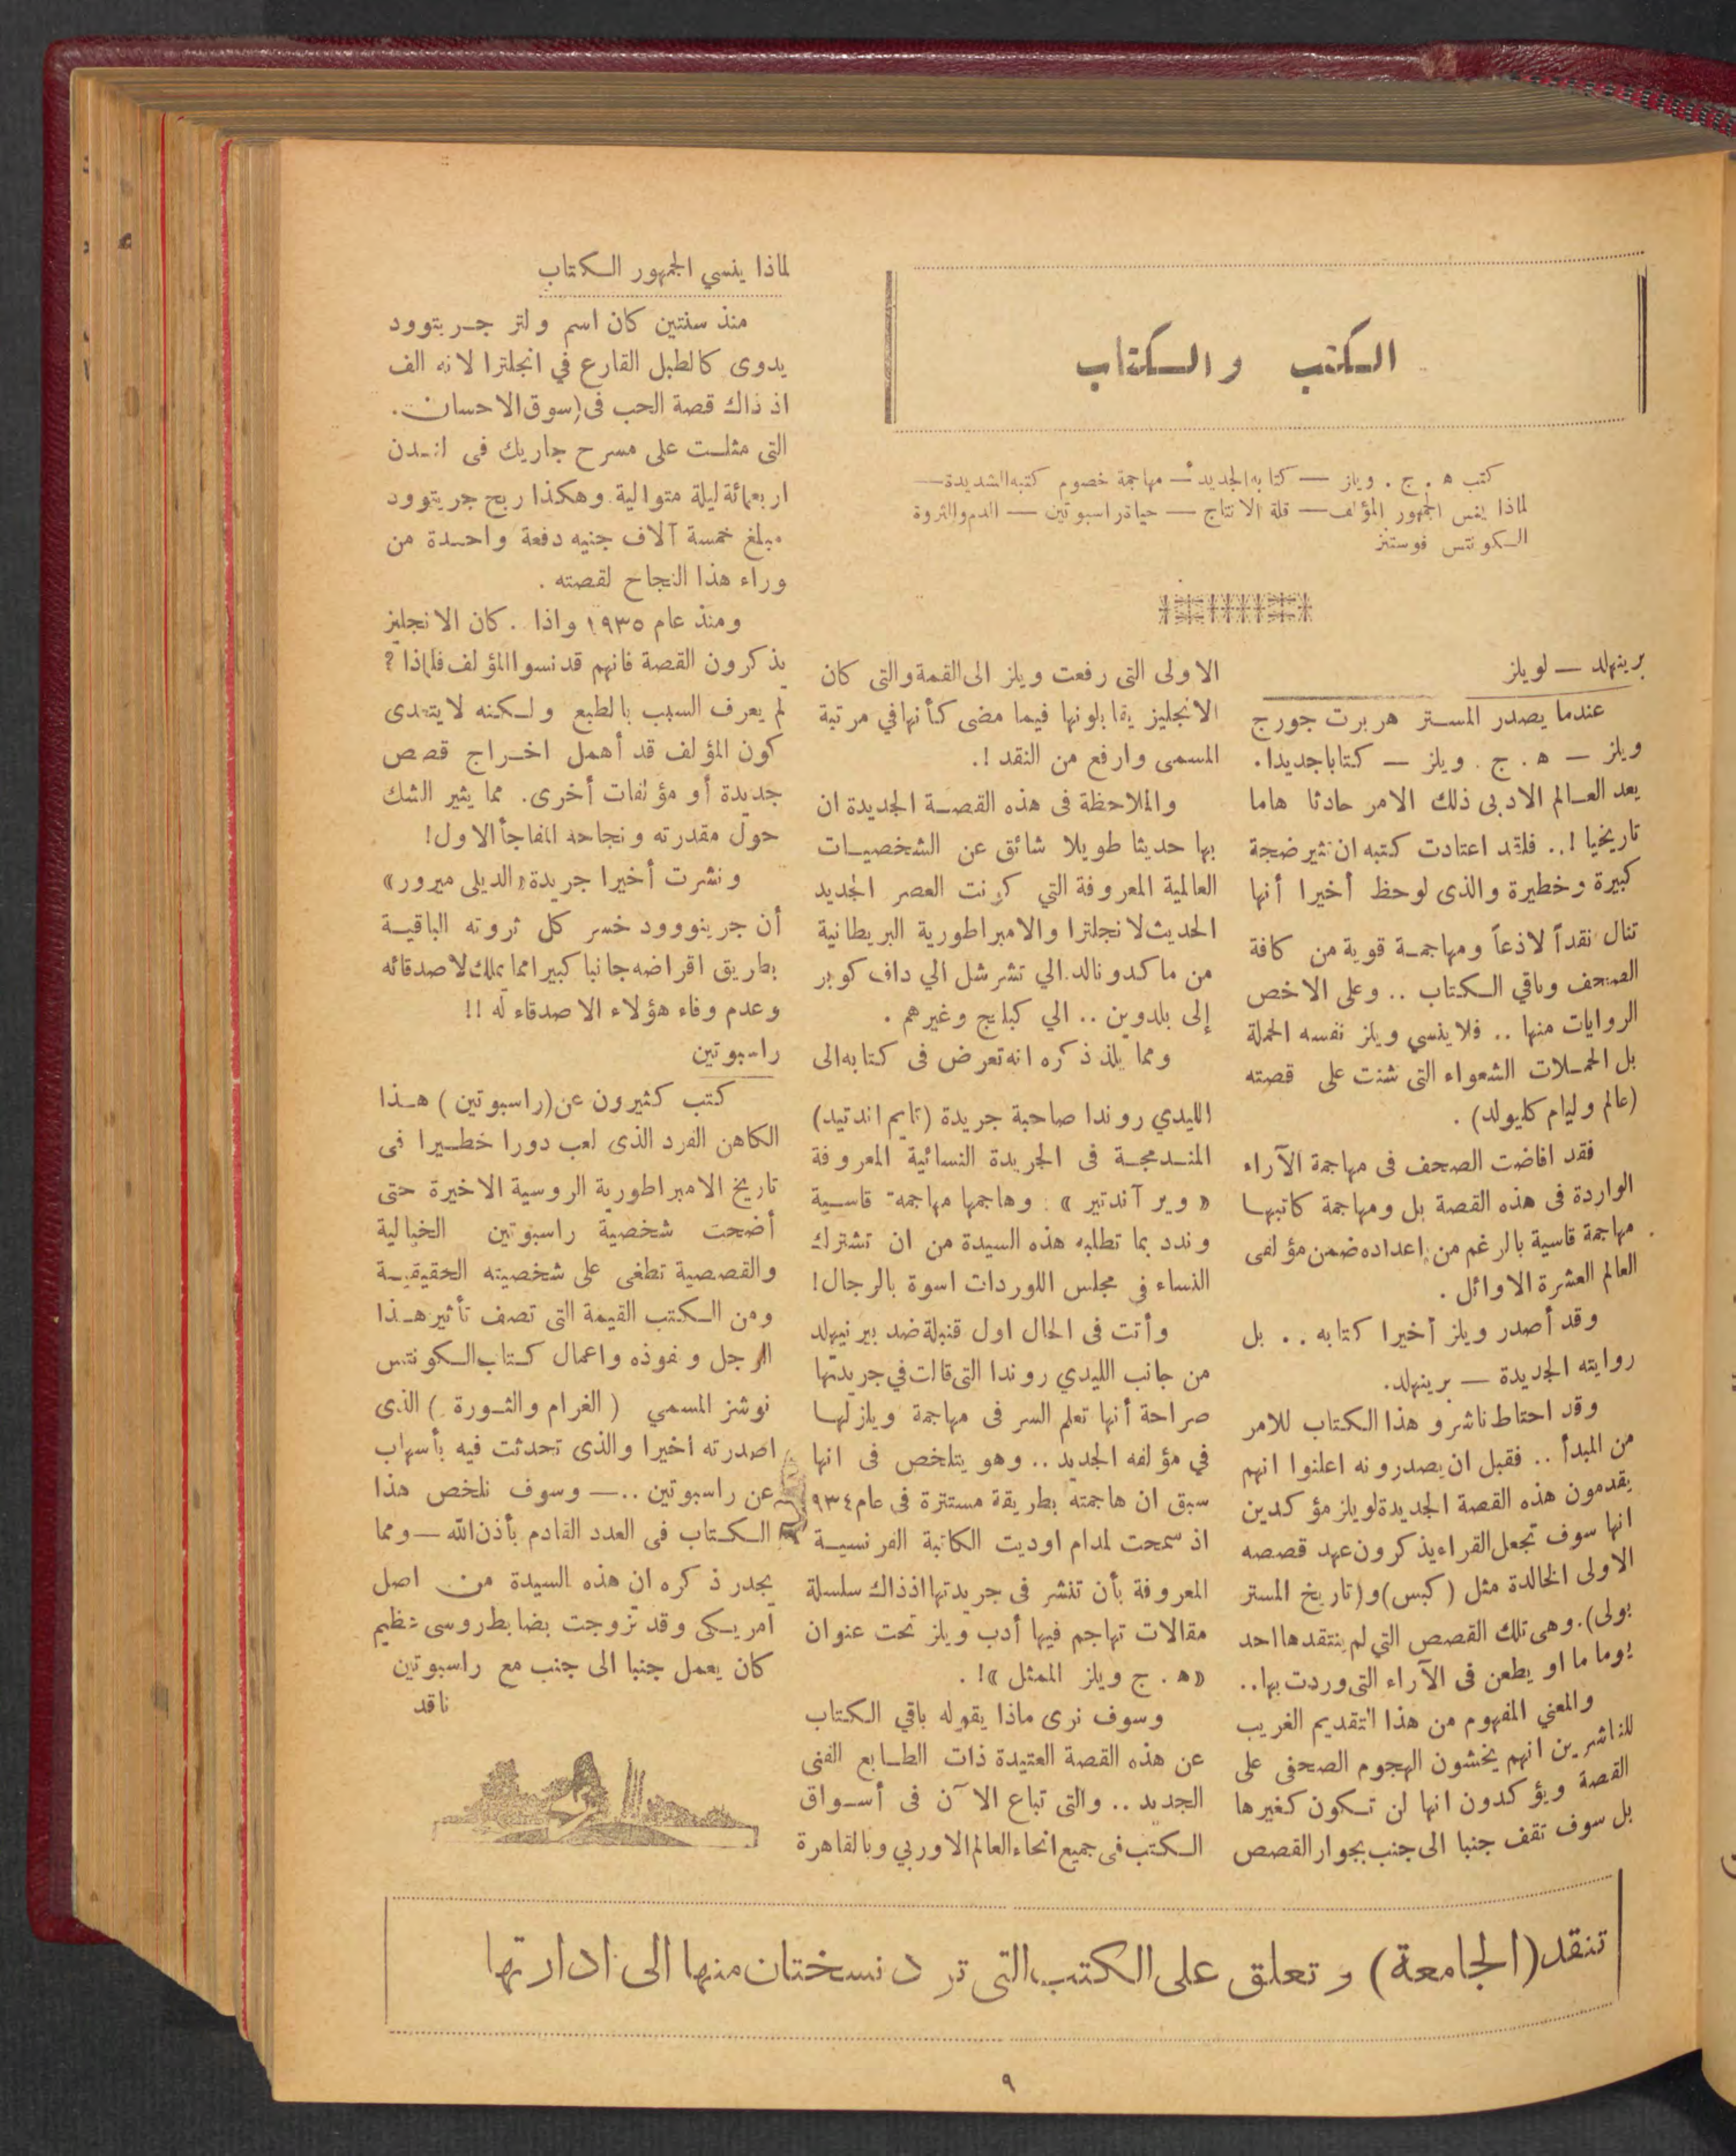 الكتب والكتاب
كتب ه . ج . ويلز — كتابه الجديد — مهاجمة خصوم كتبه الشديدة —
لماذا ينس الجمهور المؤلف — قلة الانتاج — حياة راسبوتين — الدم والثروة
الكونتس فوستنز
برينهلد — لويلز
عندما يصدر المستر هربرت جورج
ويلز — ه . ج . ويلز — كتابا جديدا .
يعد العالم الادبى ذلك الامر حادثا هاما
تاريخيا ! .. فلقد اعتادت كتبه ان تثير ضجة
كبيرة وخطيرة والذى لوحظ أخيرا أنها
تنال نقداً لاذعاً ومهاجمة قوية من كافة
الصحف وباقي الكتاب .. وعلى الاخص
الروايات منها .. فلا ينسي ويلز نفسه الحملة
بل الحملات الشعواء التى شنت على قصته
(عالم وليام كليولد) .
فقد افاضت الصحف فى مهاجمة الآراء
الواردة فى هذه القصة بل ومهاجمة كاتبها
مهاجمة قاسية بالرغم من اعداده ضمن مؤلفى
العالم العشرة الاوائل .
وقد أصدر ويلز أخيرا كتابه .. بل
روايته الجديدة — برينهلد.
وقد احتاط ناشرو هذا الكتاب للامر
من المبدأ .. فقبل ان يصدرونه اعلنوا انهم
يقدمون هذه القصة الجديدة لويلز مؤكدين
انها سوف تجعل القراء يذكرون عهد قصصه
الاولى الخالدة مثل (كبس) و(تاريخ المستر
بولى) . وهى تلك القصص التي لم ينتقدها احد
يوما ما او يطعن فى الآراء التى وردت بها ..
والمعني المفهوم من هذا التقديم الغريب
للناشرين انهم يخشون الهجوم الصحفى على
القصة ويؤكدون انها لن تكون كغيرها
بل سوف تقف جنبا الى جنب بجوار القصص
الاولى التى رفعت ويلز الى القمة والتى كان
الانجليز يقابلونها فيما مضى كأنها في مرتبة
المسمى وارفع من النقد ! .
والملاحظة فى هذه القصة الجديدة ان
بها حديثا طويلا شائق عن الشخصيات
العالمية المعروفة التي كونت العصر الجديد
الحديث لانجلترا والامبراطورية البريطانية
من ماكدونالد الي تشرشل الي داف كوبر
إلى بلدوين .. الي كبلنج وغيرهم .
ومما يلذ ذكره انه تعرض فى كتابه الى
الليدي روندا صاحبة جريدة (تايم اند تيد)
المندمجة فى الجريدة النسائية المعروفة
« وير آندتير » . وهاجمها مهاجمة قاسية
وندد بما تطلبه هذه السيدة من ان تشترك
النساء في مجلس اللوردات اسوة بالرجال !
وأتت فى الحال اول قنبلة ضد بيرنيهلد
من جانب الليدي روندا التى قالت في جريدتها
صراحة أنها تعلم السر فى مهاجمة ويلز لها
في مؤلفه الجديد .. وهو يتلخص فى انها
سبق ان هاجمته بطريقة مستترة فى عام ٩٣٤
اذ سمحت لمدام اوديت الكاتبة الفرنسية
المعروفة بأن تنشر فى جريدتها اذ ذاك سلسلة
مقالات تهاجم فيها أدب ويلز تحت عنوان
« ه . ج ويلز الممثل » ! .
وسوف نرى ماذا يقوله باقي الكتاب
عن هذه القصة العتيدة ذات الطابع الفنى
الجديد .. والتى تباع الآن فى أسواق
الكتب فى جميع انحاء العالم الاوربي وبالقاهرة
لماذا ينسي الجمهور الكتاب
منذ سنتين كان اسم ولتر جريتوود
يدوى كالطبل القارع في انجلترا لانه الف
اذ ذاك قصة الحب فى (سوق الاحسان .
التى مثلت على مسرح جاريك فى لندن
اربعمائة ليلة متوالية وهكذا ربح جريتوود
مبلغ خمسة آلاف جنيه دفعة واحدة من
وراء هذا النجاح لقصته .
ومنذ عام ١٩٣٥ واذا . كان الانجليز
يذكرون القصة فانهم قد نسوا المؤلف فلماذا ؟
لم يعرف السبب بالطبع ولكنه لا يتعدى
كون المؤلف قد أهمل اخراج قصص
جديدة أو مؤلفات أخرى . مما يثير الشك
حول مقدرته ونجاحه المفاجأ الاول !
ونشرت أخيرا جريدة « الديلى ميرور »
أن جرينووود خسر كل ثروته الباقية
بطريق اقراضه جانبا كبيرا مما يملك لاصدقائه
وعدم وفاء هؤلاء الاصدقاء له !!
راسبوتين
كتب كثيرون عن (راسبوتين) هذا
الكاهن الفرد الذى لعب دورا خطيرا فى
تاريخ الامبراطورية الروسية الاخيرة حتى
أضحت شخصية راسبوتين الخيالية
والقصصية تطغى على شخصيته الحقيقية
ومن الكتب القيمة التى تصف تأثير هذا
الرجل ونفوذه واعمال كتاب الكونتس
نوشنز المسمي ( الغرام والثورة ) الذى
اصدرته اخيرا والذى تحدثت فيه بأسهاب
عن راسبوتين .. — وسوف نلخص هذا
الكتاب فى العدد القادم بأذن الله — ومما
يجدر ذكره ان هذه السيدة من اصل
أمريكى وقد تزوجت بضابط روسى عظيم
كان يعمل جنبا الى جنب مع راسبوتين
ناقد
تنقد (الجامعة) وتعلق على الكتب التى ترد نسختان منها الى ادارتها
٩